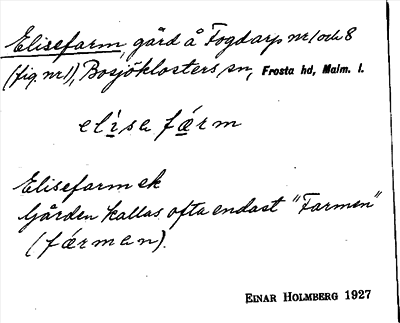 Elisefarm, gård å Fogdarp nr 1 och 8
(fig. nr 1), Bosjöklosters sn, Frosta hd, Malm. l.
elisa færm
Elisefarm ek
Gården kallas ofta endast "Farmen"
(færmen).
EINAR HOLMBERG 1927